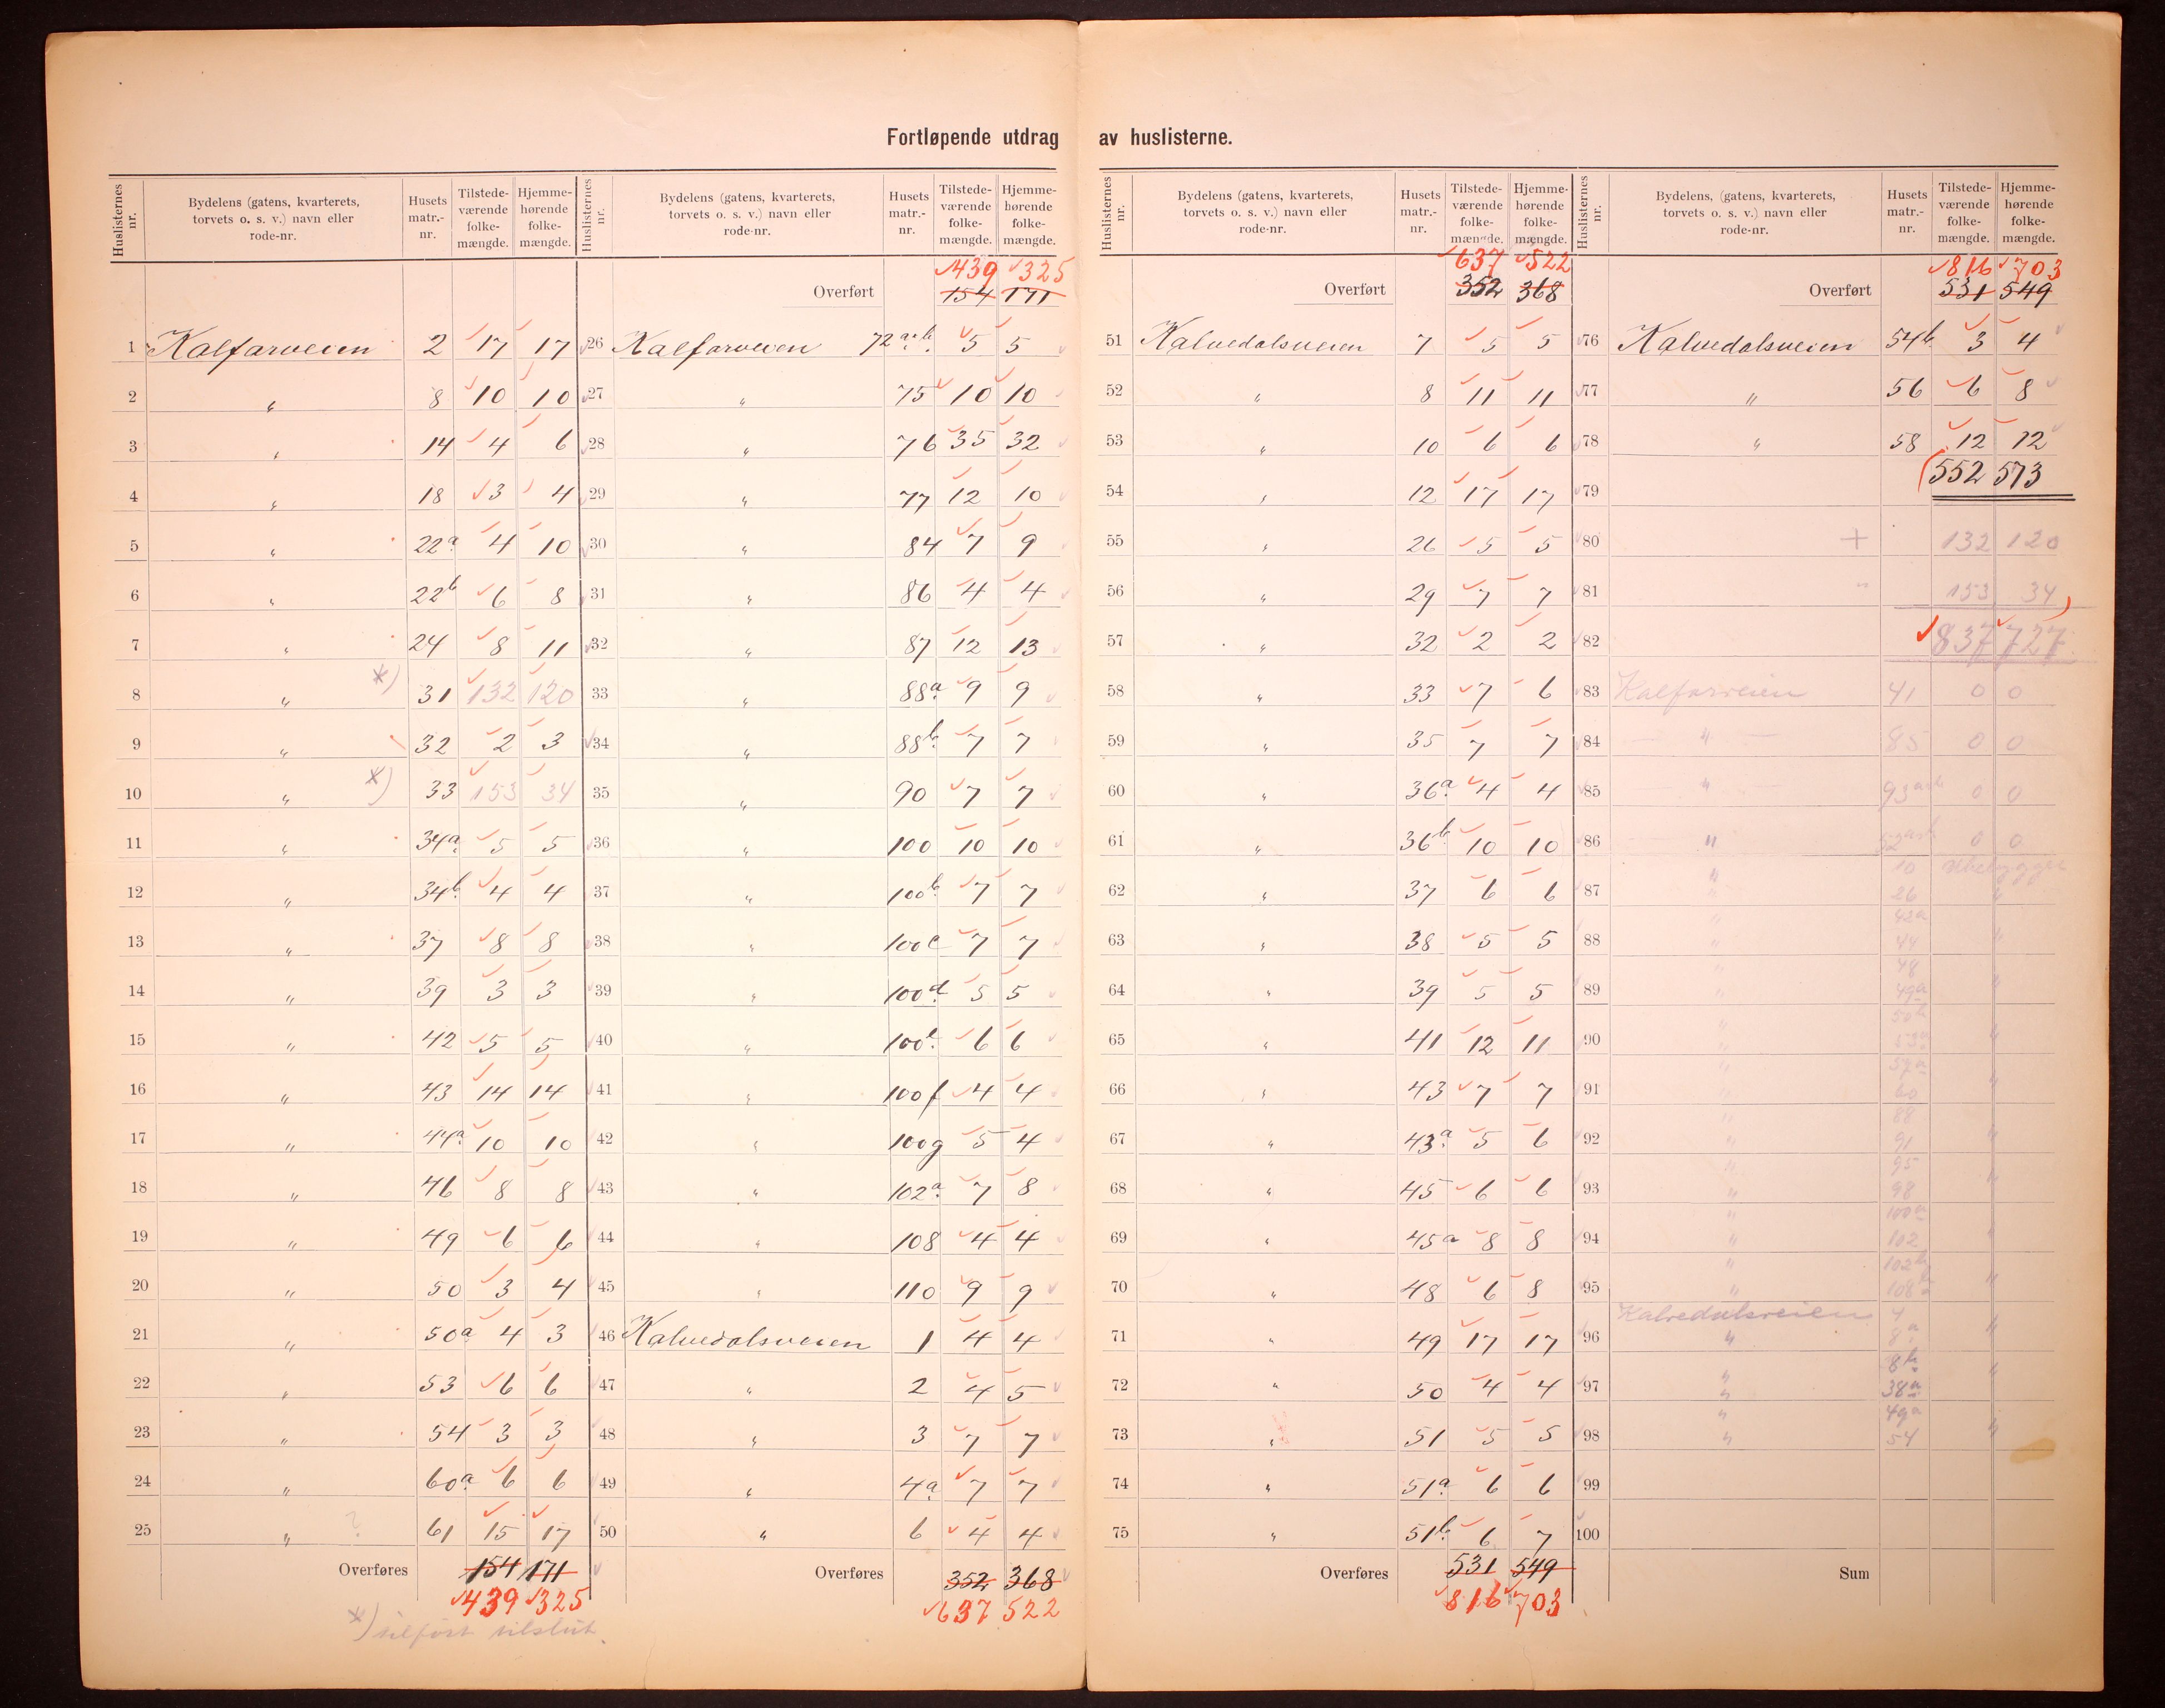 Fortløpende utdrag av huslisterne.
Huslisternes nr. | Bydelens (gatens, kvarterets, torvets o. s. v.) navn eller rode-nr. | Husets matr.-nr. | Tilstede-værende folke-mængde. | Hjemme-hørende folke-mængde.
1 Kalfarveien 2 17 17
2 " 8 10 10
3 " 14 4 6
4 " 18 3 4
5 " 22a 4 10
6 " 22b 6 8
7 " 24 8 11
8 " *) 31 132 120
9 " 32 2 3
10 " *) 33 153 34
11 " 34a 5 5
12 " 34b 4 4
13 " 37 8 8
14 " 39 3 3
15 " 42 5 5
16 " 43 14 14
17 " 44a 10 10
18 " 46 8 8
19 " 49 6 6
20 " 50 3 4
21 " 50a 4 3
22 " 53 6 6
23 " 54 3 3
24 " 60a 6 6
25 " ? 61 15 17
Overføres 154 171
439 325
*) tilført tilslut.
Huslisternes nr. | Bydelens (gatens, kvarterets, torvets o. s. v.) navn eller rode-nr. | Husets matr.-nr. | Tilstede-værende folke-mængde. | Hjemme-hørende folke-mængde.
439 325
Overført 154 171
26 Kalfarveien 72a+b 5 5
27 " 75 10 10
28 " 76 35 32
29 " 77 12 10
30 " 84 7 9
31 " 86 4 4
32 " 87 12 13
33 " 88a 9 9
34 " 88b 7 7
35 " 90 7 7
36 " 100 10 10
37 " 100b 7 7
38 " 100c 7 7
39 " 100d 5 5
40 " 100e 6 6
41 " 100f 4 4
42 " 100g 5 4
43 " 102a 7 8
44 " 108 4 4
45 " 110 9 9
46 Kalvedalsveien 1 4 4
47 " 2 4 5
48 " 3 7 7
49 " 4a 7 7
50 " 6 4 4
Overføres 352 368
637 522
Huslisternes nr. | Bydelens (gatens, kvarterets, torvets o. s. v.) navn eller rode-nr. | Husets matr.-nr. | Tilstede-værende folke-mængde. | Hjemme-hørende folke-mængde.
637 522
Overført 352 368
51 Kalvedalsveien 7 5 5
52 " 8 11 11
53 " 10 6 6
54 " 12 17 17
55 " 26 5 5
56 " 29 7 7
57 " 32 2 2
58 " 33 7 6
59 " 35 7 7
60 " 36a 4 4
61 " 36b 10 10
62 " 37 6 6
63 " 38 5 5
64 " 39 5 5
65 " 41 12 11
66 " 43 7 7
67 " 43a 5 6
68 " 45 6 6
69 " 45a 8 8
70 " 48 6 8
71 " 49 17 17
72 " 50 4 4
73 " 51 5 5
74 " 51a 6 6
75 " 51b 6 7
Overføres 531 549
816 703
Huslisternes nr. | Bydelens (gatens, kvarterets, torvets o. s. v.) navn eller rode-nr. | Husets matr.-nr. | Tilstede-værende folke-mængde. | Hjemme-hørende folke-mængde.
816 703
Overført 531 549
76 Kalvedalsveien 54b 3 4
77 " 56 6 8
78 " 58 12 12
79 552 573
80 + 132 120
81 " 153 34
82 837 727
83 Kalfarveien 41 0 0
84 " 85 0 0
85 " 93a+b 0 0
86 " 0 0
" 10
87 " 26 "
" 42a
88 " 44 "
" 48
89 " 49a "
" 50b
90 " "
" 57a
91 " 60 "
" 88
92 " 91 "
" 95
93 " 98 "
" 100a
94 " 102 "
" 102b
95 " 108b "
Kalvedalsveien 4
96 " 8a "
" 8b
97 " 38a "
" 49a
98 " 54 "
99
100
Sum